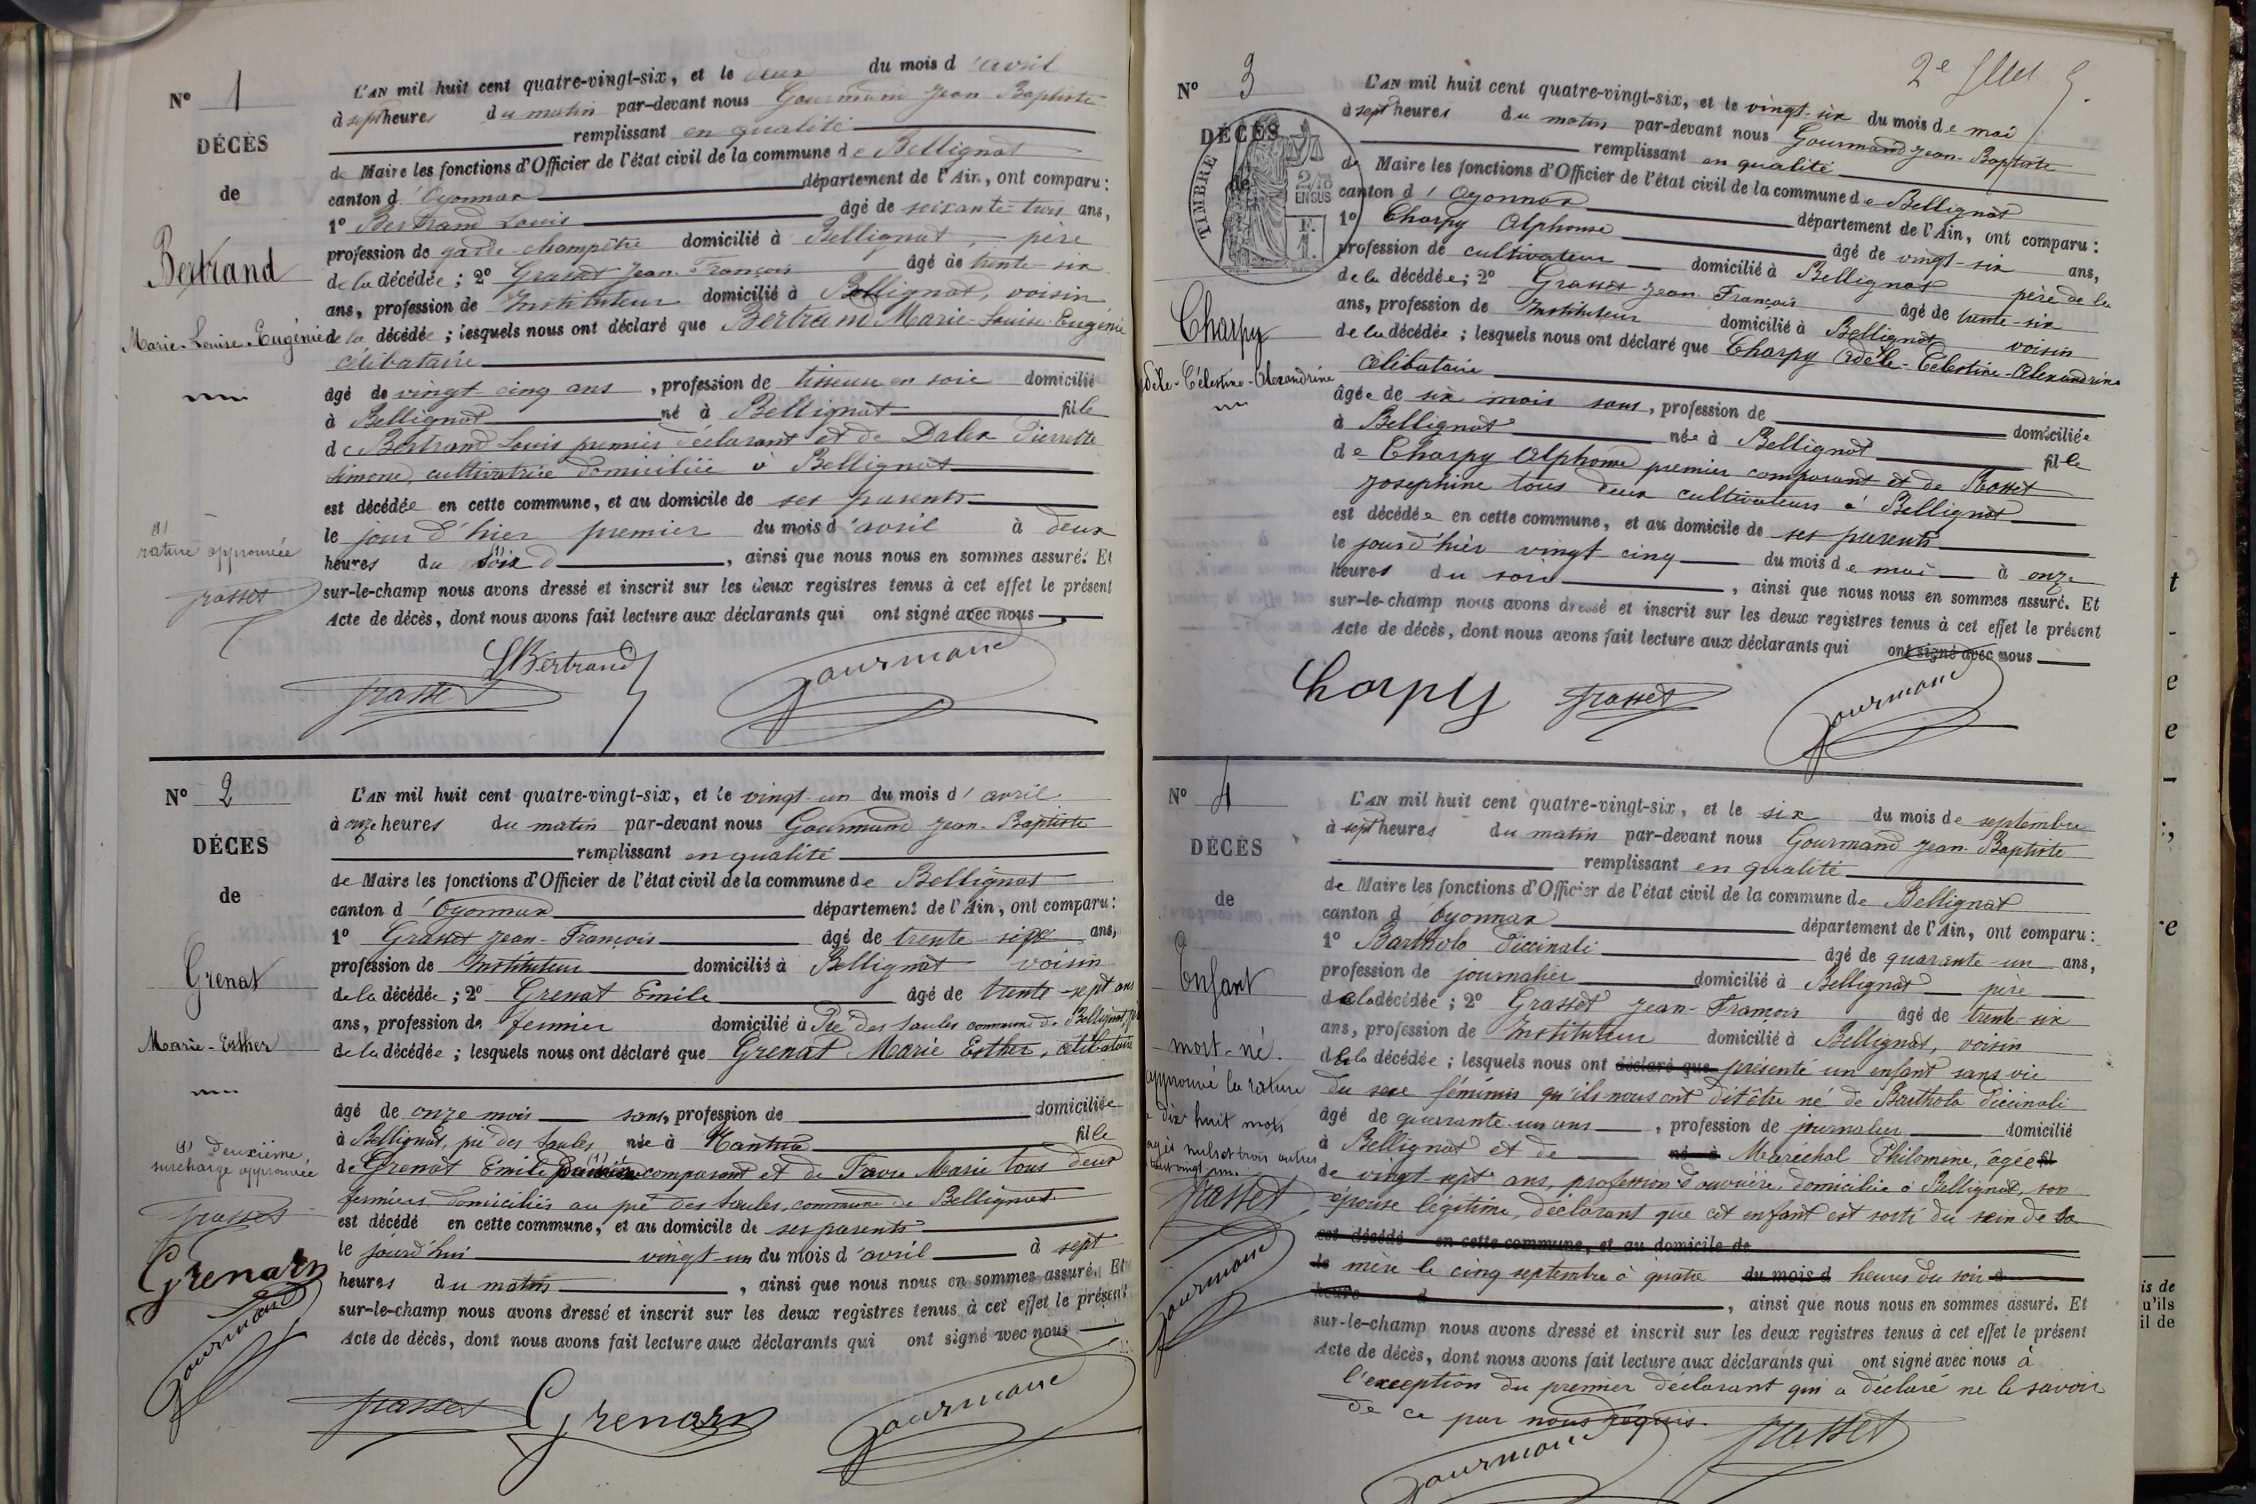 N° 1
DÉCÈS
de
Bertrand
Marie-Louise-Eugénie
(1)
rature approuvée
Grasset
L'AN mil huit cent quatre-vingt-six, et le deux du mois d'avril
à sept heures du matin par-devant nous Gourmand Jean Baptiste
remplissant en qualité
de Maire les fonctions d'Officier de l'état civil de la commune de Bellignat
canton d'Oyonnax département de l'Ain, ont comparu :
1° Bertrand Louis âgé de soixante-trois ans,
profession de garde-champêtre domicilié à Bellignat, père
de la décédée ; 2° Grasset Jean-François âgé de trente-six
ans, profession de Instituteur domicilié à Bellignat, voisin
de la décédée ; lesquels nous ont déclaré que Bertrand Marie-Louise-Eugénie
célibataire
âgé de vingt-cinq ans, profession de tisseuse en soie domicilié
à Bellignat né à Bellignat fille
de Bertrand Louis premier déclarant et de Dalex Pierrette
Simone, cultivatrice domiciliée à Bellignat
est décédée en cette commune, et au domicile de ses parents
le jour d'hier premier du mois d'avril à deux
heures du soir, ainsi que nous nous en sommes assuré. Et
sur-le-champ nous avons dressé et inscrit sur les deux registres tenus à cet effet le présent
Acte de décès, dont nous avons fait lecture aux déclarants qui ont signé avec nous
LBertrand
Grasset Gourmand
N° 2
DÉCÈS
de
Grenat
Marie-Esther
(1) deuxième
surcharge approuvée
Grasset
Gourmand
L'AN mil huit cent quatre-vingt-six, et le vingt-un du mois d'avril
à onze heures du matin par-devant nous Gourmand Jean-Baptiste
remplissant en qualité
de Maire les fonctions d'Officier de l'état civil de la commune de Bellignat
canton d'Oyonnax département de l'Ain, ont comparu :
1° Grasset Jean-François âgé de trente-six ans,
profession de Instituteur domicilié à Bellignat voisin
de la décédée ; 2° Grenat Emile âgé de trente-sept ans
ans, profession de fermier domicilié à Pré des Saules commune de Bellignat
de la décédée ; lesquels nous ont déclaré que Grenat Marie Esther, célibataire
âgé de onze mois sans, profession de domiciliée
à Bellignat, pré des Saules, née à Nantua fille
de Grenat Emile (1) deuxième comparant et de Favre Marie tous deux
fermiers domiciliés au pré des Saules, commune de Bellignat
est décédé en cette commune, et au domicile de ses parents
le jourd'hui vingt-un du mois d'avril à sept
heures du matin, ainsi que nous nous en sommes assuré. Et
sur-le-champ nous avons dressé et inscrit sur les deux registres tenus à cet effet le présent
Acte de décès, dont nous avons fait lecture aux déclarants qui ont signé avec nous
Grasset Gourmand
2e
N° 3
DÉCÈS
de
TIMBRE
2/10 EN SUS
F. 1.
Charpy
Adèle-Célestine-Alexandrine
L'AN mil huit cent quatre-vingt-six, et le vingt-six du mois de mai
à sept heures du matin par-devant nous Gourmand Jean-Baptiste
remplissant en qualité
de Maire les fonctions d'Officier de l'état civil de la commune de Bellignat
canton d'Oyonnax département de l'Ain, ont comparu :
1° Charpy Alphonse âgé de vingt-six ans,
profession de cultivateur domicilié à Bellignat père de la
de la décédée ; 2° Grasset Jean-François âgé de trente-six
ans, profession de Instituteur domicilié à Bellignat voisin
de la décédée ; lesquels nous ont déclaré que Charpy Adèle-Célestine-Alexandrine
célibataire
âgée de six mois sans, profession de domiciliée
à Bellignat née à Bellignat fille
de Charpy Alphonse premier comparant et de Rosset
Josephine tous deux cultivateurs à Bellignat
est décédée en cette commune, et au domicile de ses parents
le jour d'hier vingt-cinq du mois de mai à onze
heures du soir, ainsi que nous nous en sommes assuré. Et
sur-le-champ nous avons dressé et inscrit sur les deux registres tenus à cet effet le présent
Acte de décès, dont nous avons fait lecture aux déclarants qui ont signé avec nous
Charpy Grasset Gourmand
N° 4
DÉCÈS
de
Enfant
mort-né.
approuvé la rature
dix huit mots
rayés nuls et trois autres
Grasset
Gourmand
L'AN mil huit cent quatre-vingt-six, et le six du mois de septembre
à sept heures du matin par-devant nous Gourmand Jean-Baptiste
remplissant en qualité
de Maire les fonctions d'Officier de l'état civil de la commune de Bellignat
canton d'Oyonnax département de l'Ain, ont comparu :
1° Bartholo Piccinali âgé de quarante-un ans,
profession de journalier domicilié à Bellignat père
de la décédée ; 2° Grasset Jean-François âgé de trente-six
ans, profession de Instituteur domicilié à Bellignat, voisin
de la décédée ; lesquels nous ont déclaré que présenté un enfant sans vie
du sexe féminin qu'ils nous ont dit être né de Bartholo Piccinali
âgé de quarante-un ans, profession de journalier domicilié
à Bellignat et de né à Marechal Philomene, âgée fil
de vingt-sept ans, profession d'ouvrière domiciliée à Bellignat, son
épouse légitime, déclarant que cet enfant est sorti du sein de sa
est décédé en cette commune, et au domicile de
le mère le cinq septembre à quatre du mois d heures du soir à
heure d, ainsi que nous nous en sommes assuré. Et
sur-le-champ nous avons dressé et inscrit sur les deux registres tenus à cet effet le présent
Acte de décès, dont nous avons fait lecture aux déclarants qui ont signé avec nous à
l'exception du premier déclarant qui a déclaré ne le savoir
de ce par nous requis.
Gourmand Grasset